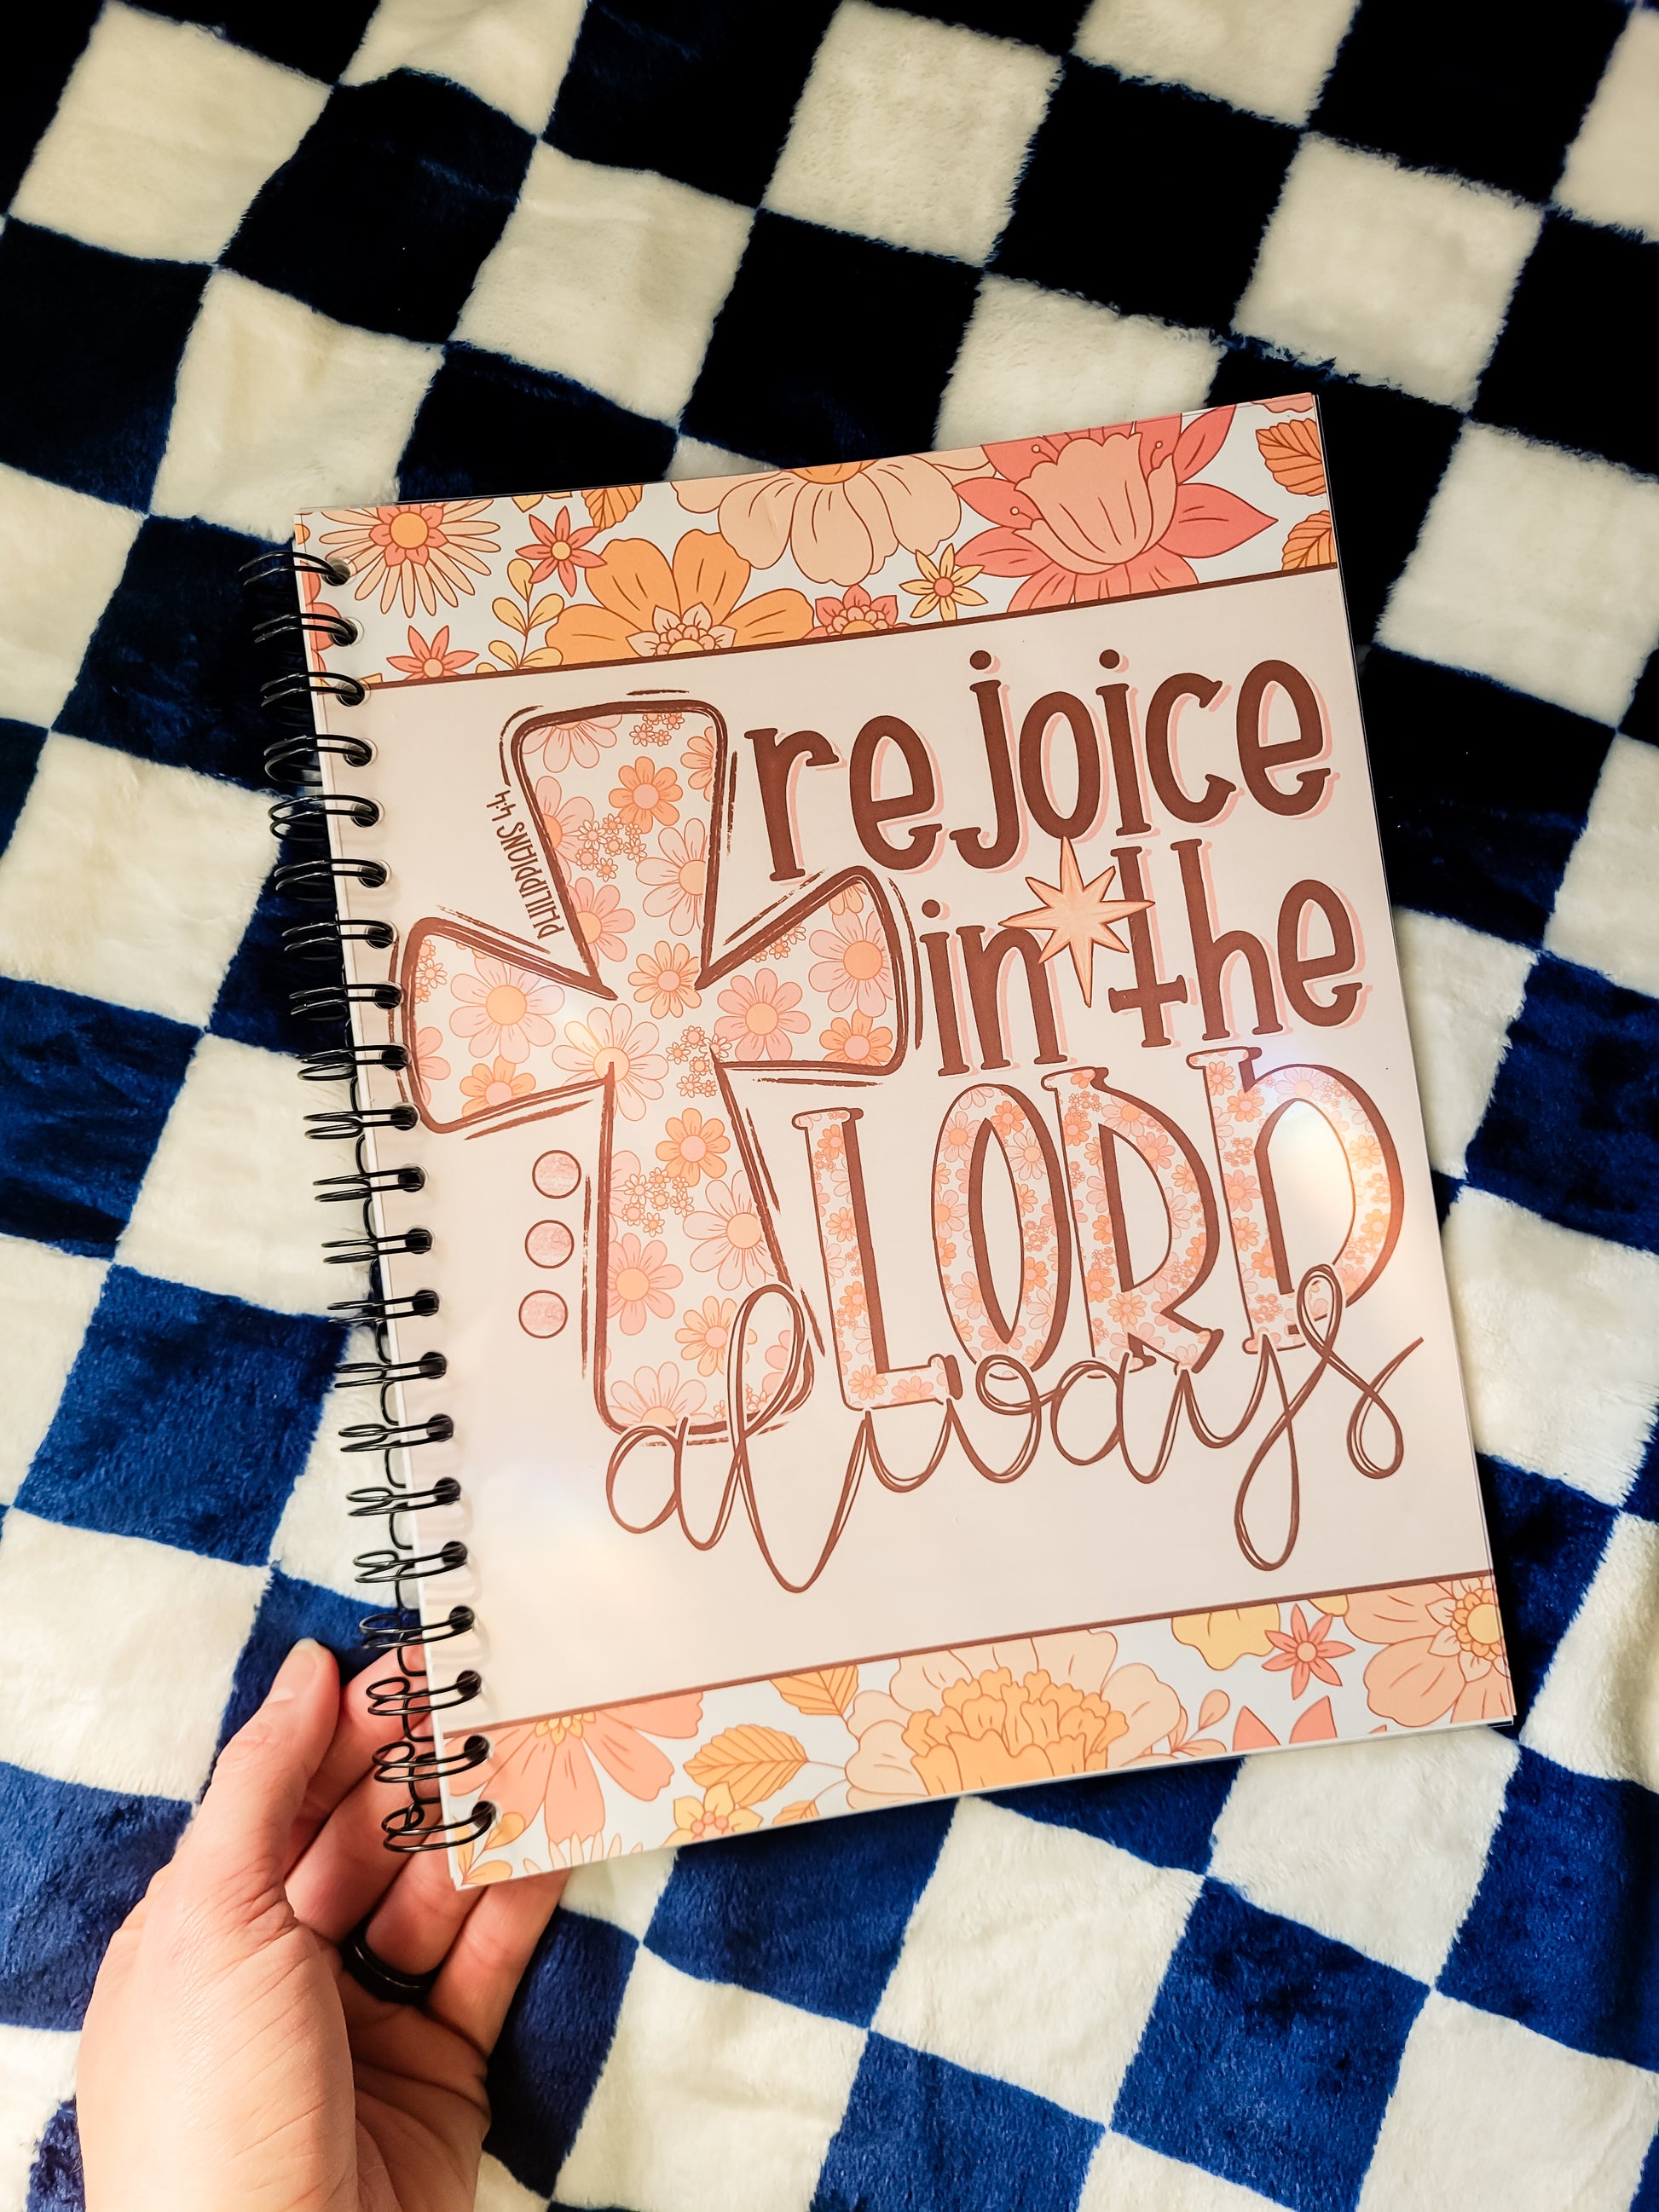 PHILIPPIANS 4:4
rejoice
in the
LORD
always